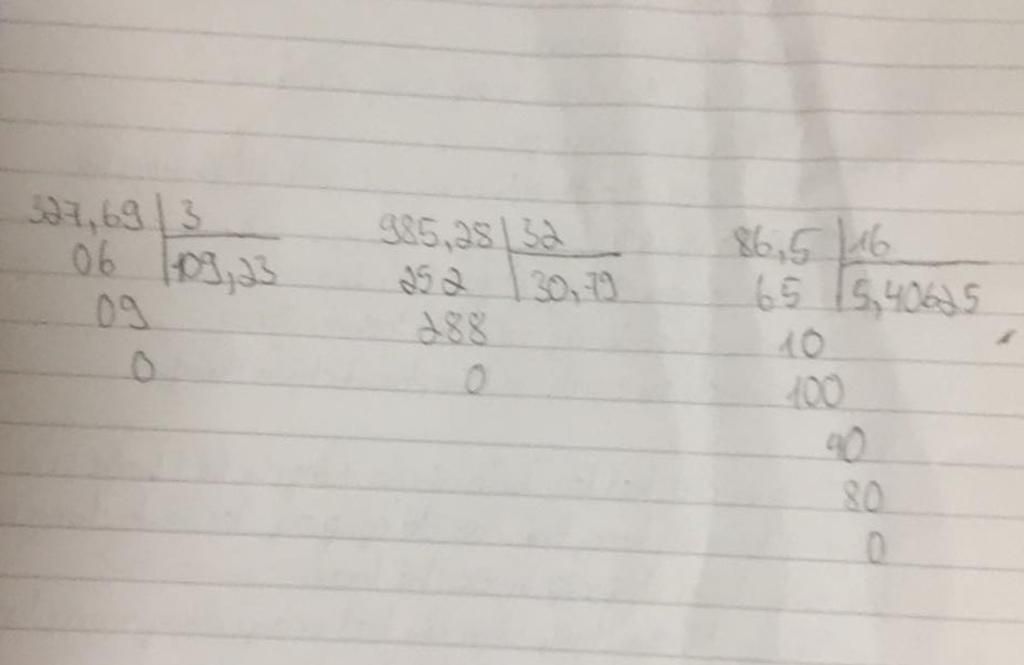 327,69 | 3
06 | 109,23
09
0
985,28 | 32
252 | 30,79
288
0
86,5 | 16
65 | 5,40625
10
100
40
80
0